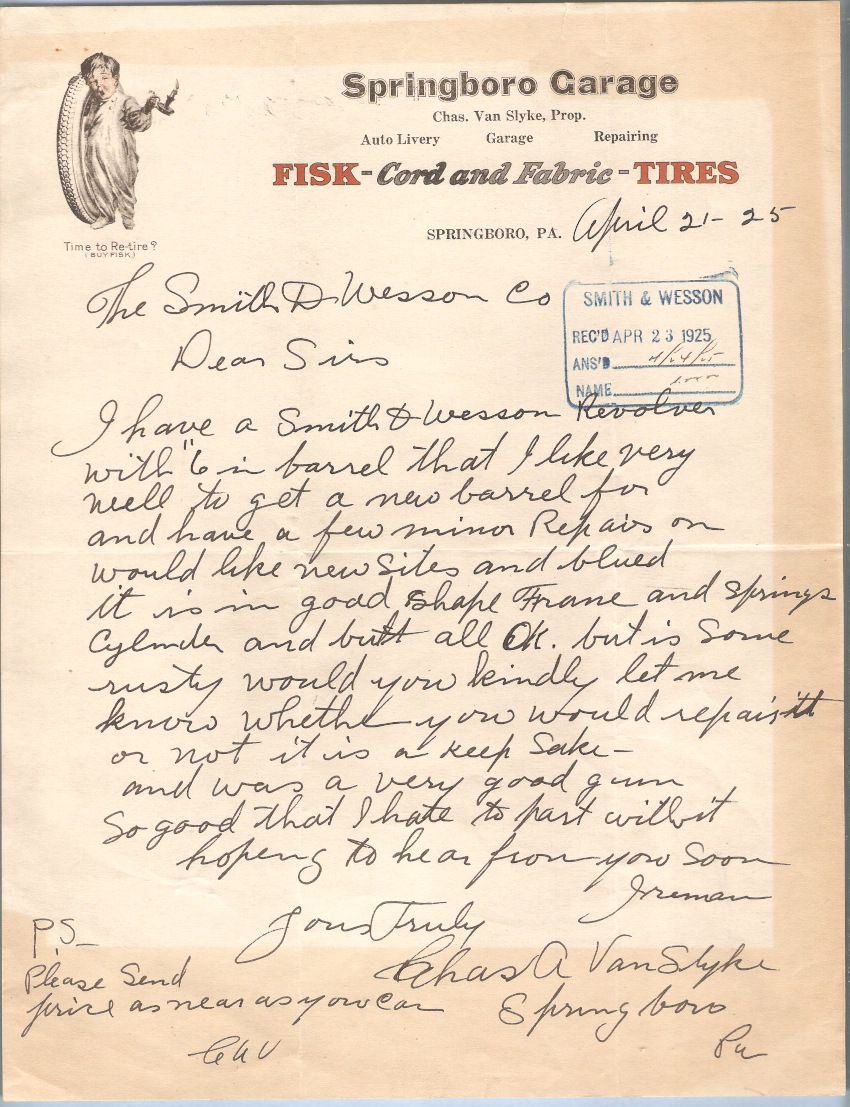 Springboro Garage
Chas. Van Slyke, Prop.
Auto Livery Garage Repairing
FISK - Cord and Fabric - TIRES
Time to Re-tire?
(BUY FISK)
SPRINGBORO, PA. April 21- 25
The Smith & Wesson Co
SMITH & WESSON
REC'D APR 23 1925
ANS'D 4/24/25
NAME
Dear Sirs
I have a Smith & Wesson Revolver
with "6 in barrel that I like very
well to get a new barrel for
and have a few minor Repairs on
would like new Sites and blued
it is in good Shape Frane and springs
Cylinder and butt all OK. but is Some
rusty would you kindly let me
know whether you would repair it
or not it is a keep Sake-
and was a very good gun
So good that I hate to part with it
hopeng to hear from you Soon
I reman
Yours Truly
Chas A Van Slyke
Springboro
Pa
P.S_
Please Send
price as near as you can
CAV